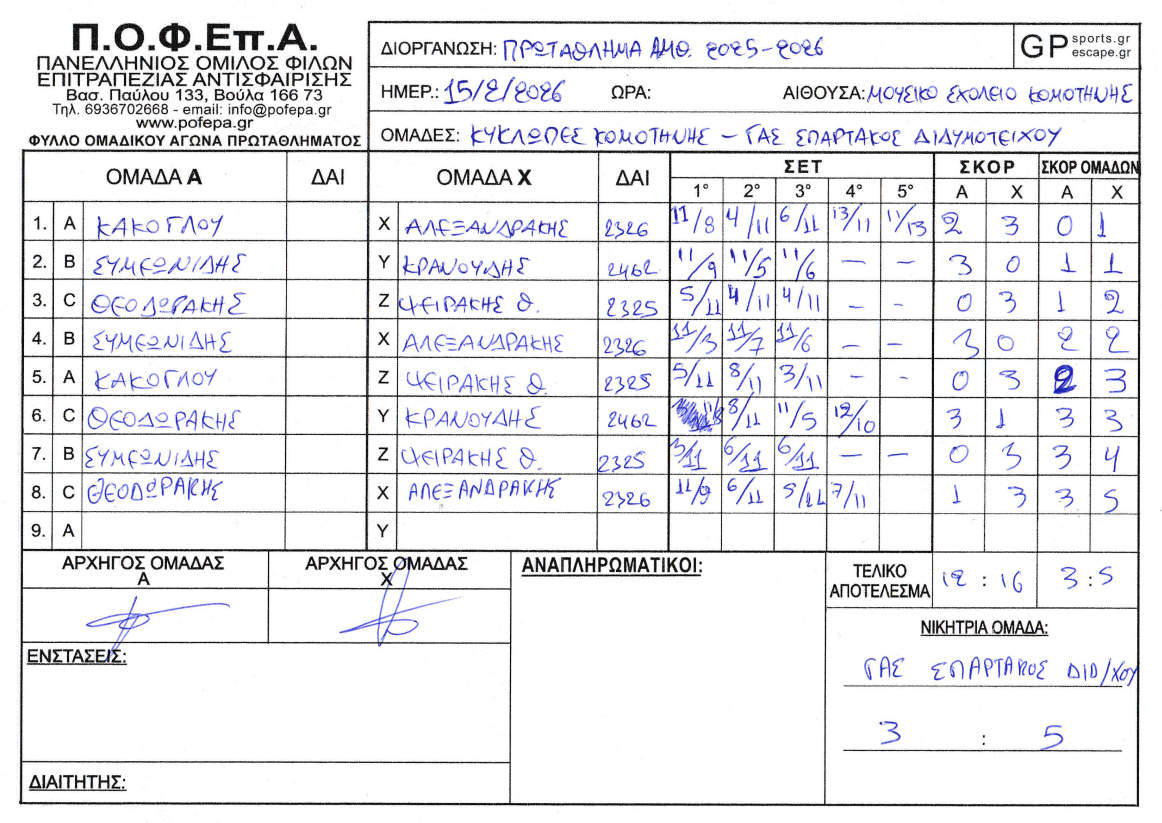 Π.Ο.Φ.Επ.Α.
ΠΑΝΕΛΛΗΝΙΟΣ ΟΜΙΛΟΣ ΦΙΛΩΝ
ΕΠΙΤΡΑΠΕΖΙΑΣ ΑΝΤΙΣΦΑΙΡΙΣΗΣ
Βασ. Παύλου 133, Βούλα 166 73
Τηλ. 6936702668 - email: info@pofepa.gr
www.pofepa.gr
ΦΥΛΛΟ ΟΜΑΔΙΚΟΥ ΑΓΩΝΑ ΠΡΩΤΑΘΛΗΜΑΤΟΣ
ΔΙΟΡΓΑΝΩΣΗ: ΠΡΩΤΑΘΛΗΜΑ ΑΜΘ. 2025-2026
GP sports.gr
escape.gr
ΗΜΕΡ.: 15/2/2026 ΩΡΑ: ΑΙΘΟΥΣΑ: ΜΟΥΣΙΚΟ ΣΧΟΛΕΙΟ ΚΟΜΟΤΗΝΗΣ
ΟΜΑΔΕΣ: ΚΥΚΛΩΠΕΣ ΚΟΜΟΤΗΝΗΣ - ΓΑΣ ΣΠΑΡΤΑΚΟΣ ΔΙΔΥΜΟΤΕΙΧΟΥ
ΟΜΑΔΑ Α ΔΑΙ ΟΜΑΔΑ Χ ΔΑΙ ΣΕΤ ΣΚΟΡ ΣΚΟΡ ΟΜΑΔΩΝ
1° 2° 3° 4° 5° Α Χ Α Χ
1. Α ΚΑΚΟΓΛΟΥ Χ ΑΛΕΞΑΝΔΡΑΚΗΣ 2326 11/8 4/11 6/11 13/11 11/13 2 3 0 1
2. Β ΣΥΜΕΩΝΙΔΗΣ Υ ΚΡΑΝΟΥΔΗΣ 2462 11/9 11/5 11/6 - - 3 0 1 1
3. C ΘΕΟΔΩΡΑΚΗΣ Ζ ΨΕΙΡΑΚΗΣ Θ. 2325 5/11 4/11 4/11 - - 0 3 1 2
4. Β ΣΥΜΕΩΝΙΔΗΣ Χ ΑΛΕΞΑΝΔΡΑΚΗΣ 2326 11/3 11/7 11/6 - - 3 0 2 2
5. Α ΚΑΚΟΓΛΟΥ Ζ ΨΕΙΡΑΚΗΣ Θ. 2325 5/11 8/11 3/11 - - 0 3 2 3
6. C ΘΕΟΔΩΡΑΚΗΣ Υ ΚΡΑΝΟΥΔΗΣ 2462 8/11 11/5 12/10 3 1 3 3
7. Β ΣΥΜΕΩΝΙΔΗΣ Ζ ΨΕΙΡΑΚΗΣ Θ. 2325 3/11 6/11 6/11 - - 0 3 3 4
8. C ΘΕΟΔΩΡΑΚΗΣ Χ ΑΛΕΞΑΝΔΡΑΚΗΣ 2326 11/9 6/11 5/11 7/11 1 3 3 5
9. Α Υ
ΑΡΧΗΓΟΣ ΟΜΑΔΑΣ
Α
ΑΡΧΗΓΟΣ ΟΜΑΔΑΣ
Χ
ΑΝΑΠΛΗΡΩΜΑΤΙΚΟΙ:
ΤΕΛΙΚΟ
ΑΠΟΤΕΛΕΣΜΑ 12 : 16 3 : 5
ΝΙΚΗΤΡΙΑ ΟΜΑΔΑ:
ΓΑΣ ΣΠΑΡΤΑΚΟΣ ΔΙΔ/ΧΟΥ
3 : 5
ΕΝΣΤΑΣΕΙΣ:
ΔΙΑΙΤΗΤΗΣ: